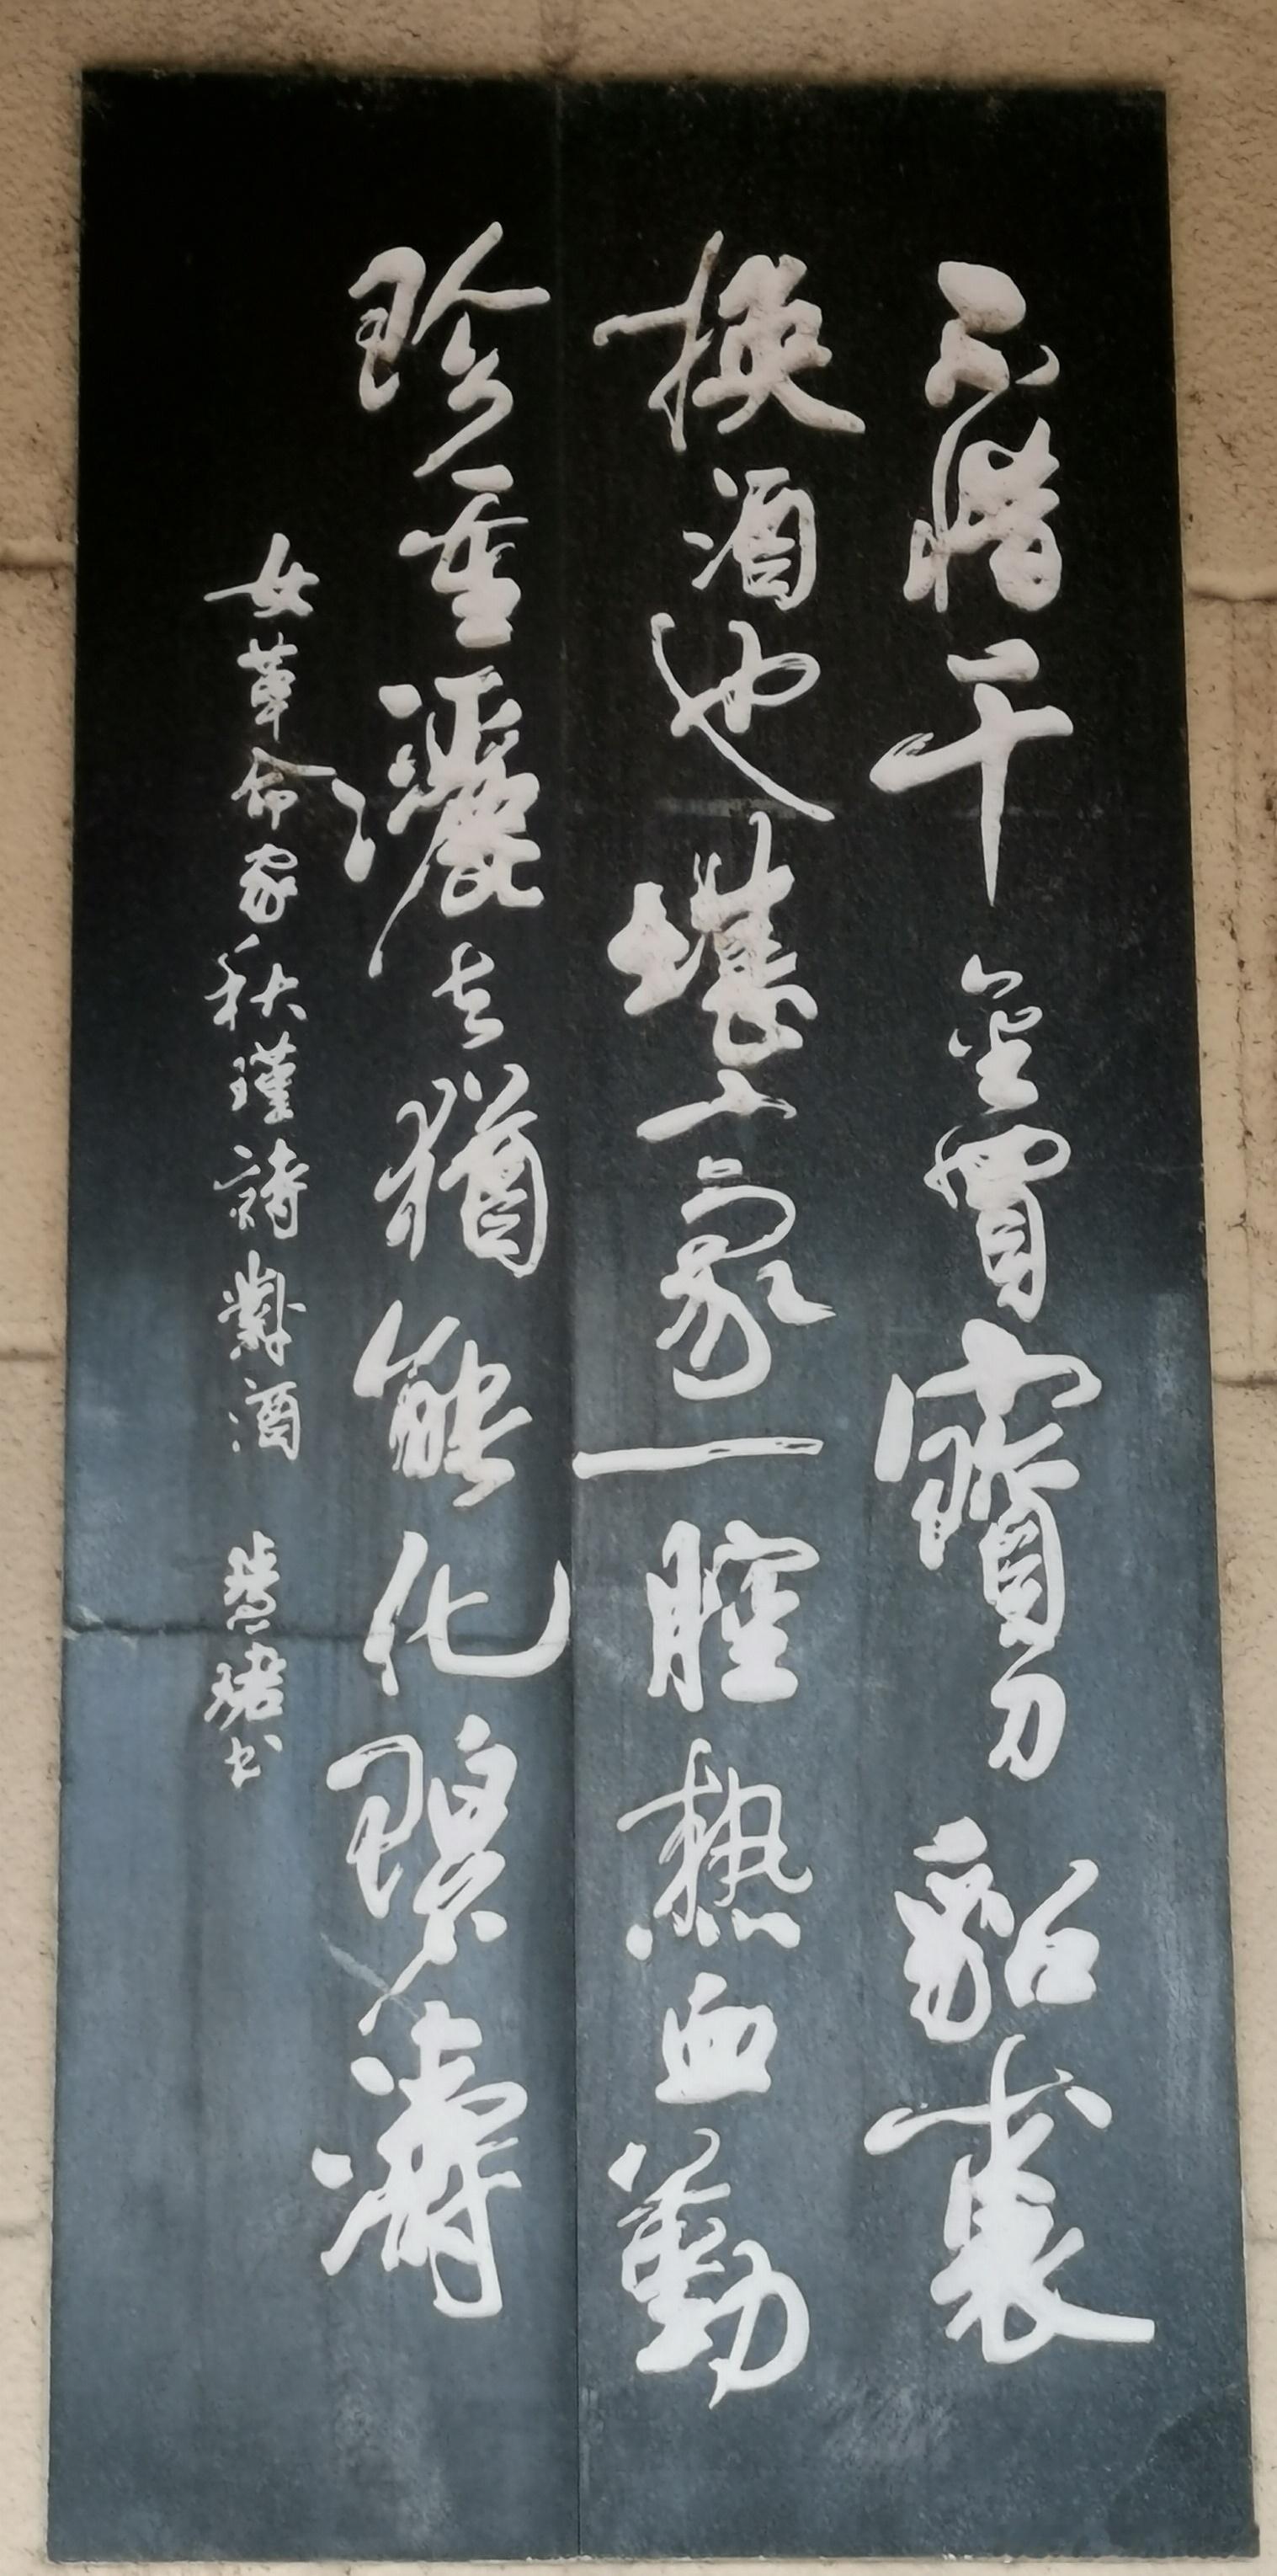 不惜千金買寶刀貂裘
換酒也堪豪一腔熱血勤
珍重灑去猶能化碧濤
女革命家秋瑾詩對酒 慧珺书